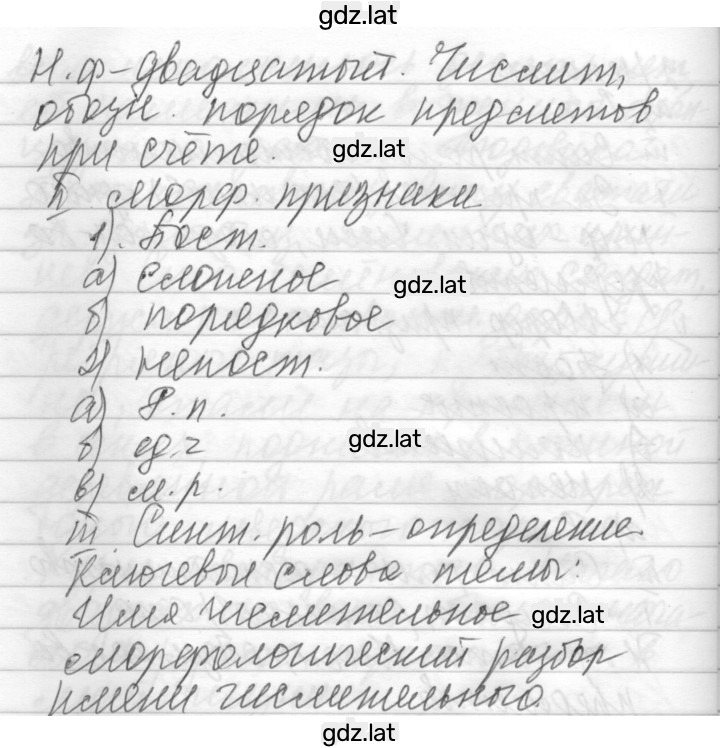 gdz.lat
Н.ф-двадцатый. Числит,
обозн. порядок предметов
при счёте. gdz.lat
II морф. признаки
1). Пост.
а) сложное gdz.lat
б) порядковое
2) непост.
а) Р.п.
б) ед.ч gdz.lat
в) м.р.
III Синт. роль-определение.
Ключевые слова темы:
Имя числительное gdz.lat
морфологический разбор
имени числительного.
gdz.lat